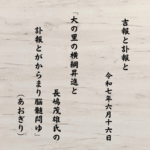 吉報と訃報と
令和七年六月十六日
「大の里の横綱昇進と
長嶋茂雄氏の
訃報とがからまり脳髄悶ゆ」
(あおぎり)